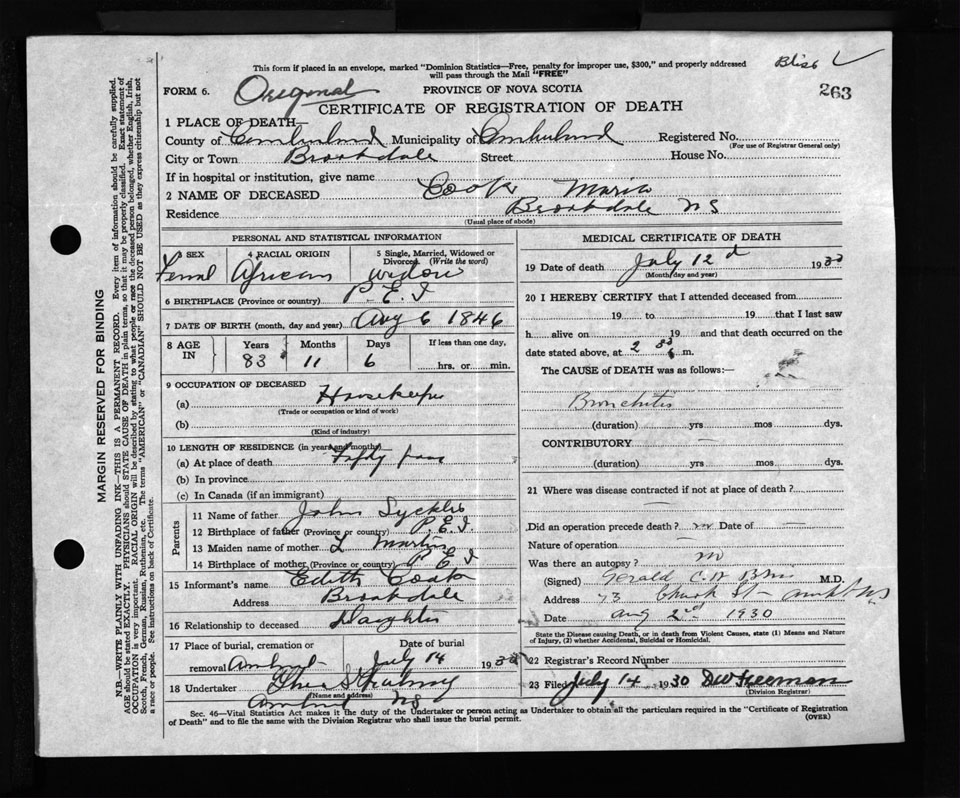 Bliss
This form if placed in an envelope, marked "Dominion Statistics—Free, penalty for improper use, $300," and properly addressed
will pass through the Mail "FREE"
FORM 6.
Original
PROVINCE OF NOVA SCOTIA
263
CERTIFICATE OF REGISTRATION OF DEATH
1 PLACE OF DEATH—
County of Cumberland Municipality of Cumberland Registered No.
(For use of Registrar General only)
City or Town Brookdale Street House No.
If in hospital or institution, give name
2 NAME OF DECEASED Cook Maria
Residence Brookdale NS
(Usual place of abode)
PERSONAL AND STATISTICAL INFORMATION
3 SEX 4 RACIAL ORIGIN 5 Single, Married, Widowed or
Divorced (Write the word)
Femal African widow
6 BIRTHPLACE (Province or country) P.E.I
7 DATE OF BIRTH (month, day and year) Aug 6 1846
8 AGE IN Years Months Days If less than one day,
83 11 6 hrs. or min.
9 OCCUPATION OF DECEASED
(a) Housekeeper
(Trade or occupation or kind of work)
(b)
(Kind of industry)
10 LENGTH OF RESIDENCE (in years and months)
(a) At place of death Fifty years
(b) In province
(c) In Canada (if an immigrant)
Parents
11 Name of father John
12 Birthplace of father (Province or country) P.E.I.
13 Maiden name of mother L Martin
14 Birthplace of mother (Province or country) P E I
15 Informant's name Edith Cook
Address Brookdale
16 Relationship to deceased Daughter
17 Place of burial, cremation or Date of burial
removal Amherst July 14 1930
18 Undertaker
(Name and address)
Amherst NS
MEDICAL CERTIFICATE OF DEATH
19 Date of death July 12 d 1930
(Month, day and year)
20 I HEREBY CERTIFY that I attended deceased from
19 to 19 that I last saw
h alive on 19 and that death occurred on the
date stated above, at 2 m.
The CAUSE of DEATH was as follows:—
Bronchitis
(duration) yrs mos dys.
CONTRIBUTORY —
(duration) yrs — mos dys.
21 Where was disease contracted if not at place of death?
Did an operation precede death? no Date of —
Nature of operation —
Was there an autopsy? no
(Signed) Gerald C. W. Bliss M.D.
Address 73 Church St
Date Aug 2nd 1930
State the Disease causing Death, or in death from Violent Causes, state (1) Means and Nature
of Injury, (2) whether Accidental, Suicidal or Homicidal.
22 Registrar's Record Number
23 Filed July 14 1930 DW Freeman
(Division Registrar)
Sec. 46—Vital Statistics Act makes it the duty of the Undertaker or person acting as Undertaker to obtain all the particulars required in the "Certificate of Registration
of Death" and to file the same with the Division Registrar who shall issue the burial permit. (OVER)
MARGIN RESERVED FOR BINDING
N.B.—WRITE PLAINLY WITH UNFADING INK—THIS IS A PERMANENT RECORD. Every item of information should be carefully supplied.
AGE should be stated EXACTLY. PHYSICIANS should STATE CAUSE OF DEATH in plain terms, so that it may be properly classified. Exact statement of
OCCUPATION is very important. RACIAL ORIGIN will be described by stating to what people or race the deceased person belonged, whether English, Irish,
Scotch, French, German, Russian, Ruthenian, etc. The terms "AMERICAN" or "CANADIAN" SHOULD NOT BE USED as they express citizenship but not
a race or people. See instructions on back of Certificate.